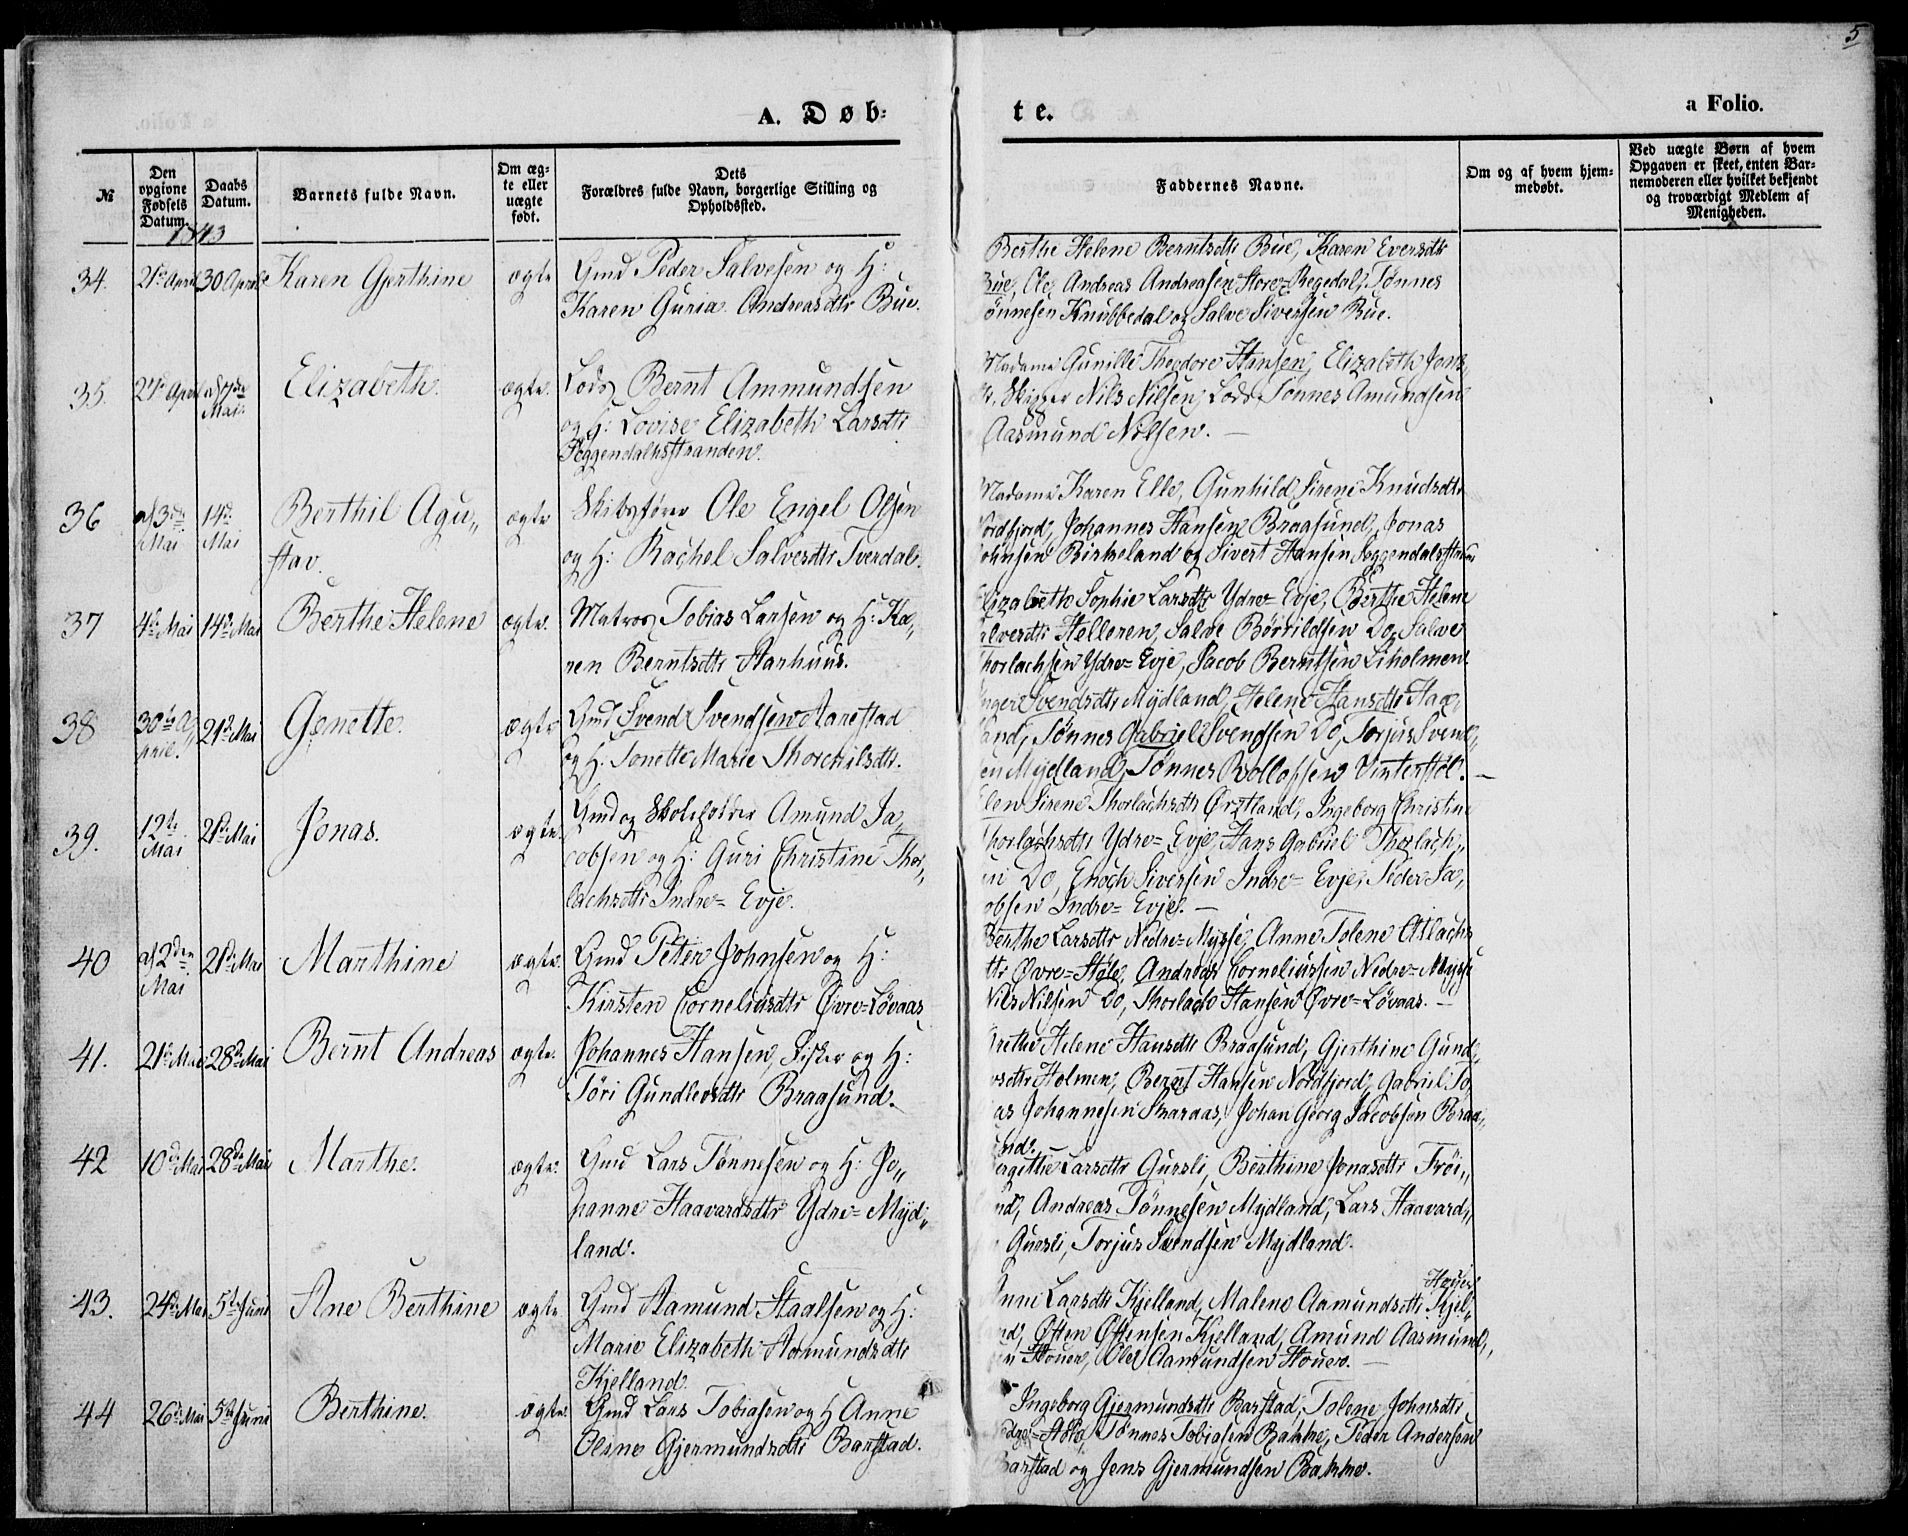 5
A. Døb-
te.
a Folio.
№
Den opgivne Fødsels Datum.
Daabs Datum.
Barnets fulde Navn.
Om ægte eller uægte født.
Dets Forældres fulde Navn, borgerlige Stilling og Opholdssted.
Faddernes Navne.
Om og af hvem hjemmedøbt.
Ved uægte Børn af hvem Opgaven er skeet, enten Barnemoderen eller hvilket bekjendt og troværdigt Medlem af Menigheden.
1843
34. 21de April 30 April Karen Gjerthine ægte Gmd Peder Salvesen og H:
Karen Guria Andreasdtr Bue.
Berthe Helene Berntsdtr Bue, Karen Eversdtr
Bue, Ole Andreas Andreasen Store-Regedal, Tønnes
Tønnesen Knubbedal og Salve Siversen Bue.
35. 27de April 7de Mai. Elizabeth. ægte. Lods Bernt Ammundsen
og H: Lovise Elizabeth Larsdtr
Soggendalsstranden.
Madame Gunille Theodore Hansen, Elizabeth Jons
Skipper Nils Nilsen, Lods Tønnes Amundsen
Aasmund Nilsen. —
36 3de Mai 14de Mai Berthil Agu„
stav. ægte Skibsfører Ole Engel Olsen
og H: Rachel Salvesdtr Tverdal.
Madame Karen Elle, Gunhild Sirene Knudsdtr
Nordfjord, Johannes Hansen Braasund, Jonas
Johnsen Birkeland og Sivert Hansen Soggendalsstranden
37 4de Mai 14de Mai Berthe Helene ægte. Matros Tobias Larsen og H: Ka„
ren Berntsdtr Aarhuus.
Elizabeth Sophie Larsdtr Ydre-Evje, Berthe Helene
Salvesdtr Helleren, Salve Børrildsen Do, Salve
Thorlachsen Ydre-Evje, Jacob Berntsen Liholmen.
38 30te A„
pril. 21de Mai Genette. ægte Gmd Svend Svendsen Aarestad
og H: Tonette Marie Thorchilsdtr.
Inger Svendsdtr Mydland, Helene Hansdtr Haa„
land, Tønnes Gabriel Svendsen Do, Torjus Svend„
sen Mydland, Tønnes Rollofsen Vinterstøl. —
39. 12te Mai 21de Mai Jonas. ægte. Gmd og Skoleholder Amund Ja„
cobsen og H: Guri Christine Thor„
lachsdtr Indre- Evje.
Elen Sirene Thorlachsdtr Ørstland, Ingeborg Christine
Thorlachsdtr Ydre- Evje, Hans Gabriel Thorlach„
sen Do, Enoch Siversen Indre- Evje, Peder Ja„
cobsen Indre- Evje. —
40 2den Mai 21de Mai Marthine ægte. Gmd Peter Johnsen og H:
Kirsten Corneliusdtr Øvre-Løvaas
Berthe Larsdtr Nedre-Mysse, Anne Tolene Atlachs
dtr Øvre-Støle, Andreas Corneliussen Nedre-Mysse
Nils Nilsen Do, Thorlach Hansen Øvre-Løvaas. —
41. 21de Mai 28de Mai Bernt Andreas ægte. Johannes Hansen, Fisker og H:
Töri Gundlevsdtr Braasund.
Grethe Helene Hansdtr Braasund, Gjerthine Gund„
levsdtr Holmen, Bernt Hansen Nordfjord, Gabriel To„
bias Johannesen Skaraas, Johan Georg Jacobsen Braa„
sund. —
42 10de Mai 28de Mai Marthe. ægte. Gmd Lars Tønnesen og H: Jo„
hanne Haavardsdtr Ydre-Myd„
land.
Bergitthe Larsdtr Gursli, Berthine Jonasdtr Frøi„
land, Andreas Tønnesen Mydland, Lars Haavard„
sen Gursli, Torjus Svendsen Mydland.
43. 24de Mai 5te Juni Ane Berthine ægte. Gmd Aamund Staalsen og H:
Marie Elizabeth Aamundsdtr
Kjelland.
Houes
Anne Larsdtr Kjelland, Malene Aamundsdtr Kjel„
land, Osten Ostensen Kjelland, Amund Aasmund„
sen Houen, Olle Aamundsen Houen. —
44 26de Mai 5te Juni Berthine. ægte. Gmd Lars Tobiasen og H Anne
Olene Gjermundsdtr Barstad.
Ingeborg Gjermundsdtr Barstad, Tolene Johnsdtr
Tønnes Tobiasen Bakke, Peder Andersen
Barstad og Jens Gjermundsen Bakke.